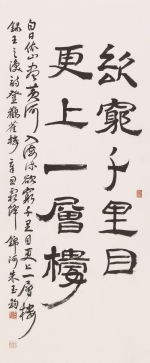 欲窮千里目
更上一層樓
白日依山盡黃河入海流欲窮千里目更上一層樓
錄王之渙詩登鸛雀樓 辛丑 錦河 朱玉